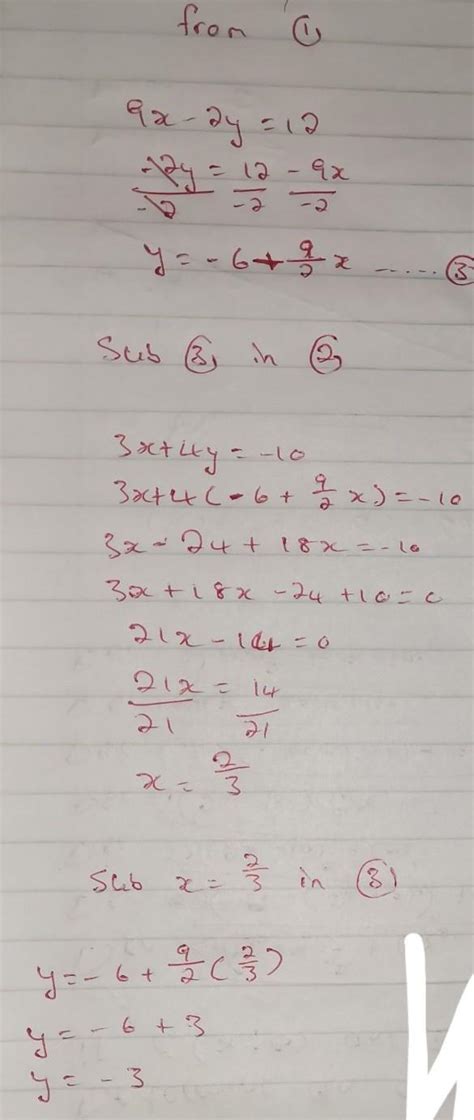 from ①
9x - 2y = 12
-2y/-2 = 12/-2 - 9x/-2
y = -6 + 9/2 x ..... ③
Sub ③ in ②
3x + 4y = -10
3x + 4(-6 + 9/2 x) = -10
3x - 24 + 18x = -10
3x + 18x - 24 + 10 = 0
21x - 14 = 0
21x/21 = 14/21
x = 2/3
Sub x = 2/3 in ③
y = -6 + 9/2 (2/3)
y = -6 + 3
y = -3